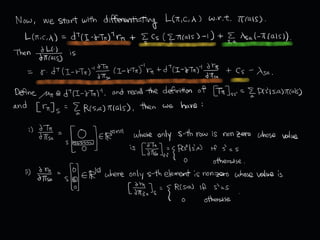 Now, we start with differentiating L(π,c,λ) w.r.t. π(a|s).
L(π,c,λ) = dᵀ(I-γTπ)⁻¹rπ + Σₛ cₛ(Σₐ π(a|s)-1) + Σₛ,ₐ λₛₐ(-π(a|s))
Then ∂L(·)/∂π(a|s) is
= γ dᵀ(I-γTπ)⁻¹ ∂Tπ/∂πₛₐ (I-γTπ)⁻¹ rπ + dᵀ(I-γTπ)⁻¹ ∂rπ/∂πₛₐ + cₛ - λₛₐ.
Define μᵀπ = dᵀ(I-γTπ)⁻¹, and recall the definition of [Tπ]ₛₛ' = Σₐ P(s'|s,a)π(a|s)
and [rπ]ₛ = Σₐ R(s,a)π(a|s), then we have :
i) ∂Tπ/∂πₛₐ = s [0 0] ∈ ℝ^{|S|×|S|} where only s-th row is non zero whose value
is [∂Tπ/∂πₛₐ]ₛₛ' = { P(s'|s,a) if s = s
0 otherwise.
ii) ∂rπ/∂πₛₐ = s [0 0 0] ∈ ℝ^{|S|} where only s-th element is non zero whose value is
[∂rπ/∂πₛₐ]ₛ = { R(s,a) if s = s
0 otherwise